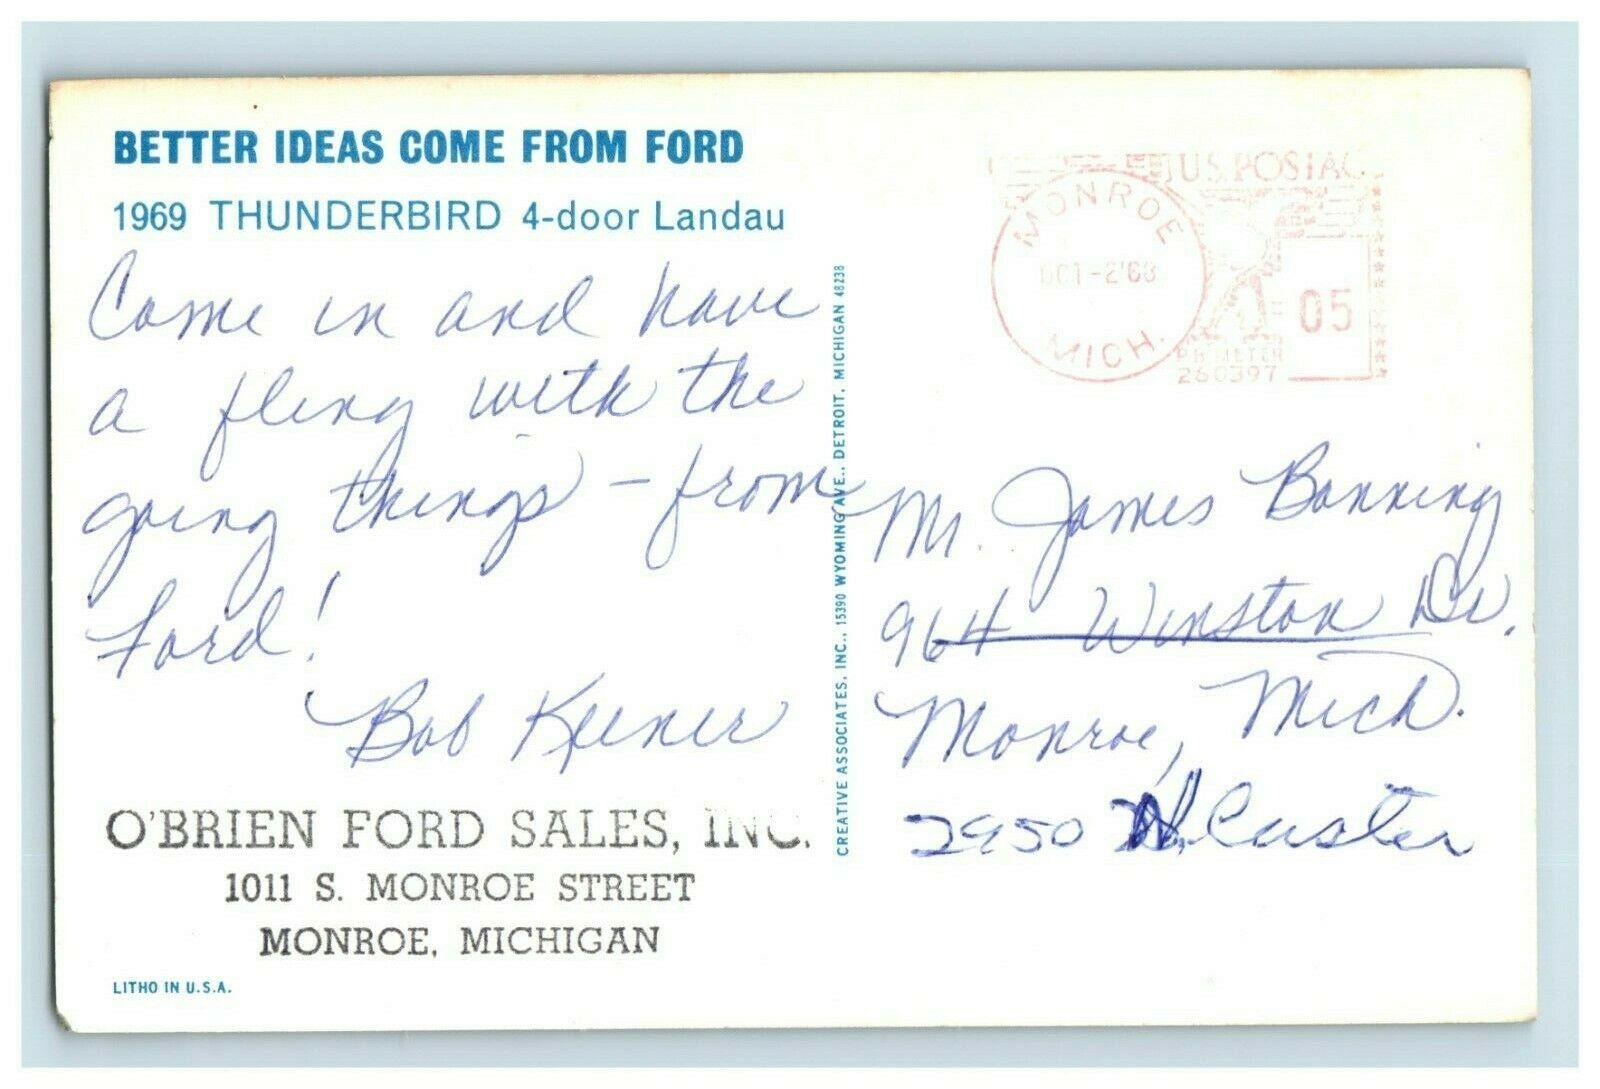 BETTER IDEAS COME FROM FORD
1969 THUNDERBIRD 4-door Landau
Come in and have
a fling with the
going things - from
Ford!
Bob Keener
O'BRIEN FORD SALES, INC.
1011 S. MONROE STREET
MONROE, MICHIGAN
LITHO IN U.S.A.
CREATIVE ASSOCIATES, INC., 15390 WYOMING AVE., DETROIT, MICHIGAN 48238
MONROE
OCT-2'68
MICH.
U.S. POSTAG
05
PB METER
260397
Mr. James Banning
964 Winston Dr.
Monroe, Mich.
2950 N. Custer